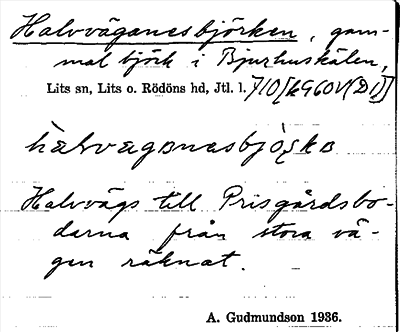 Halvväganesbjörken, gam-
mal björk i Bjurhuskälen,
Lits sn, Lits o. Rödöns hd, Jtl. l.
Halvvägs till Prisgårdsbo-
darna från stora vä-
gen räknat.
A. Gudmundson 1936.